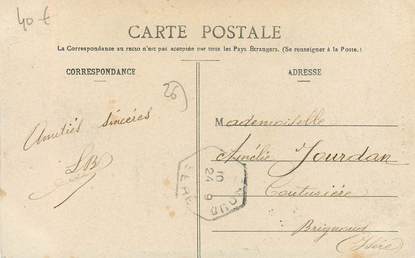 40 €
CARTE POSTALE
La Correspondance au recto n'est pas acceptée par tous les Pays Étrangers. (Se renseigner à la Poste.)
CORRESPONDANCE
ADRESSE
26
Amitiés sincères
Mademoiselle
Amélie Jourdan
Couturière
Brignoud
Isère
10
24 9